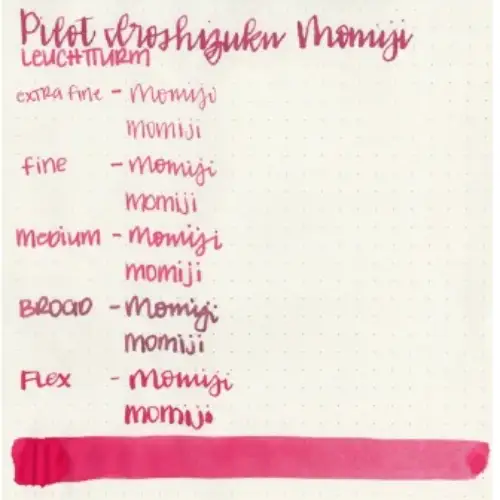 Pilot Iroshizuku Momiji
LEUCHTTURM
extra fine - Momiji
momiji
fine - Momiji
momiji
medium - Momiji
momiji
BROAD - Momiji
momiji
FLEX - Momiji
momiji